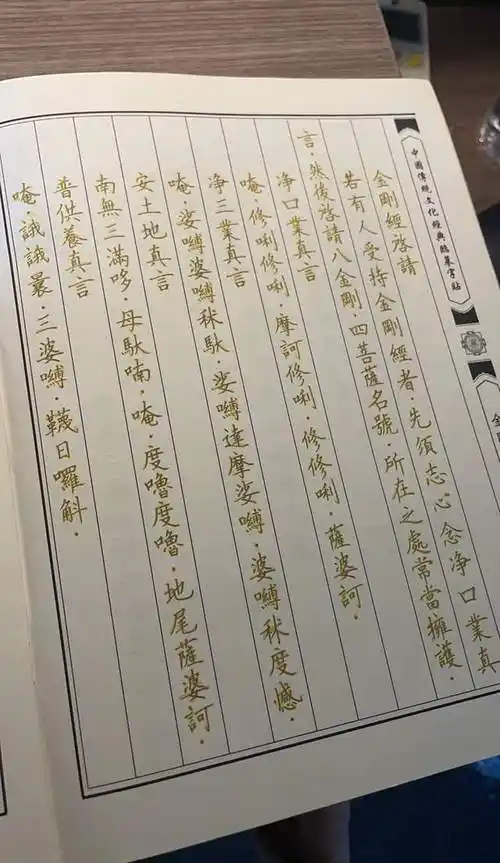 中國傳統文化經典臨摹字貼
金剛經啓請
若有人受持金剛經者.先須志心念净口業真
言.然後啓請八金剛.四菩薩名號.所在之處常當擁護.
净口業真言
唵.修唎修唎.摩訶修唎.修修唎.薩婆訶.
净三業真言
唵.娑嚩婆嚩秫馱.娑嚩達摩娑嚩.婆嚩秫度憾.
安土地真言
南無三滿哆.母馱喃.唵.度嚕度嚕.地尾薩婆訶.
普供養真言
唵.誐誐曩.三婆嚩.韈日囉斛.